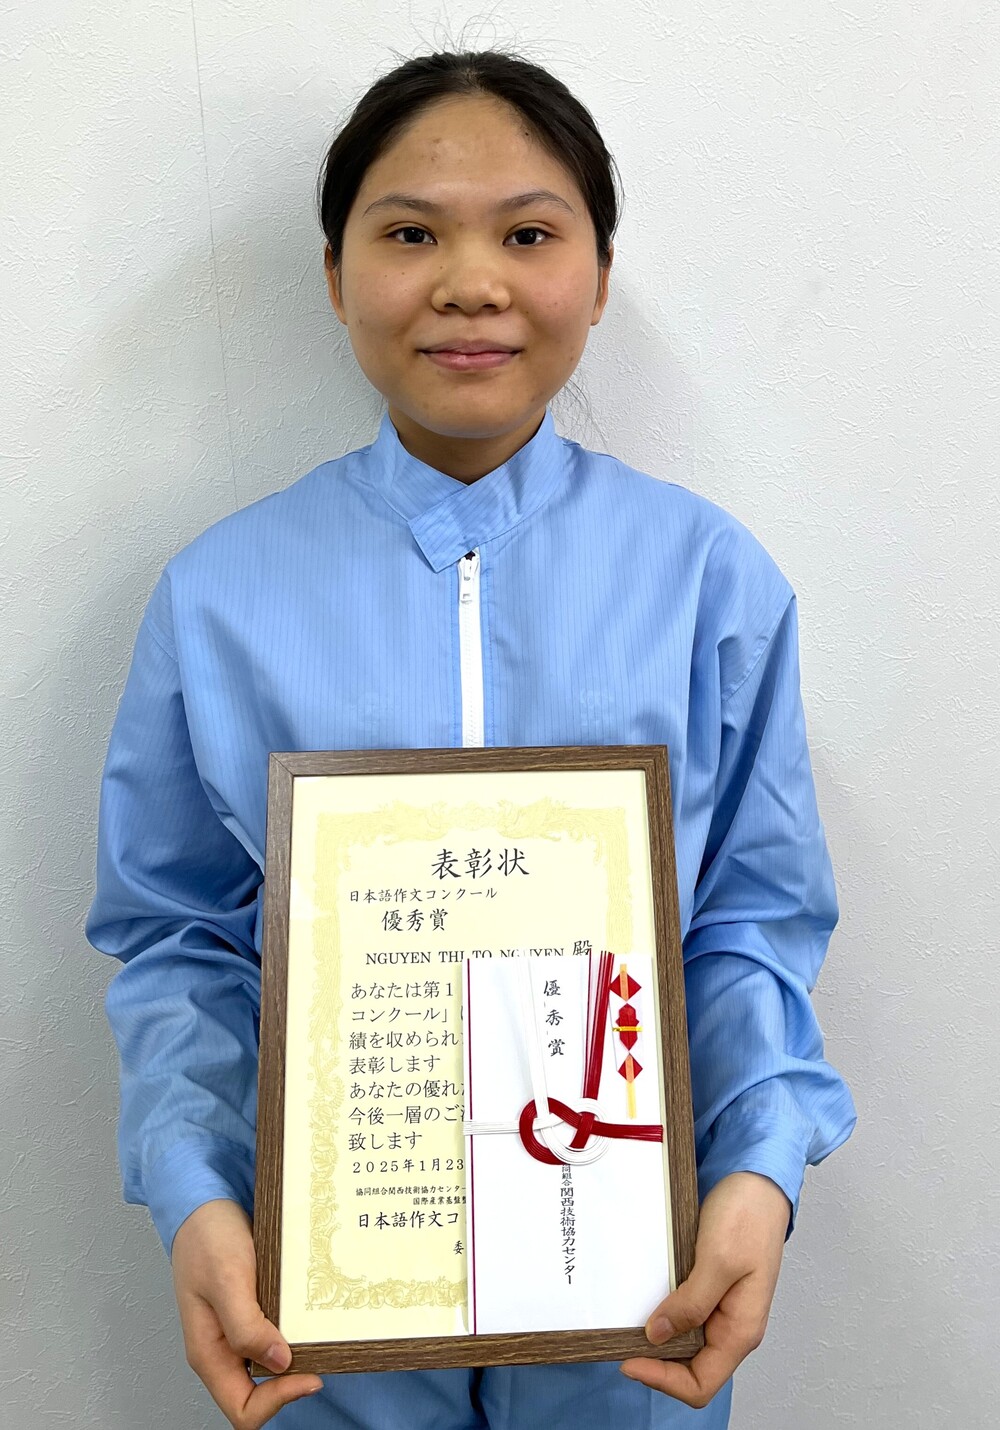 表彰状
日本語作文コンクール
優秀賞
NGUYEN THI TO NGUYEN 殿
あなたは第1
コンクール」
績を収められ
表彰します
あなたの優れ
今後一層のご
致します
2025年1月23
協同組合関西技術協力センター
国際産業基盤整
日本語作文コ
委
優秀賞
協同組合関西技術協力センター